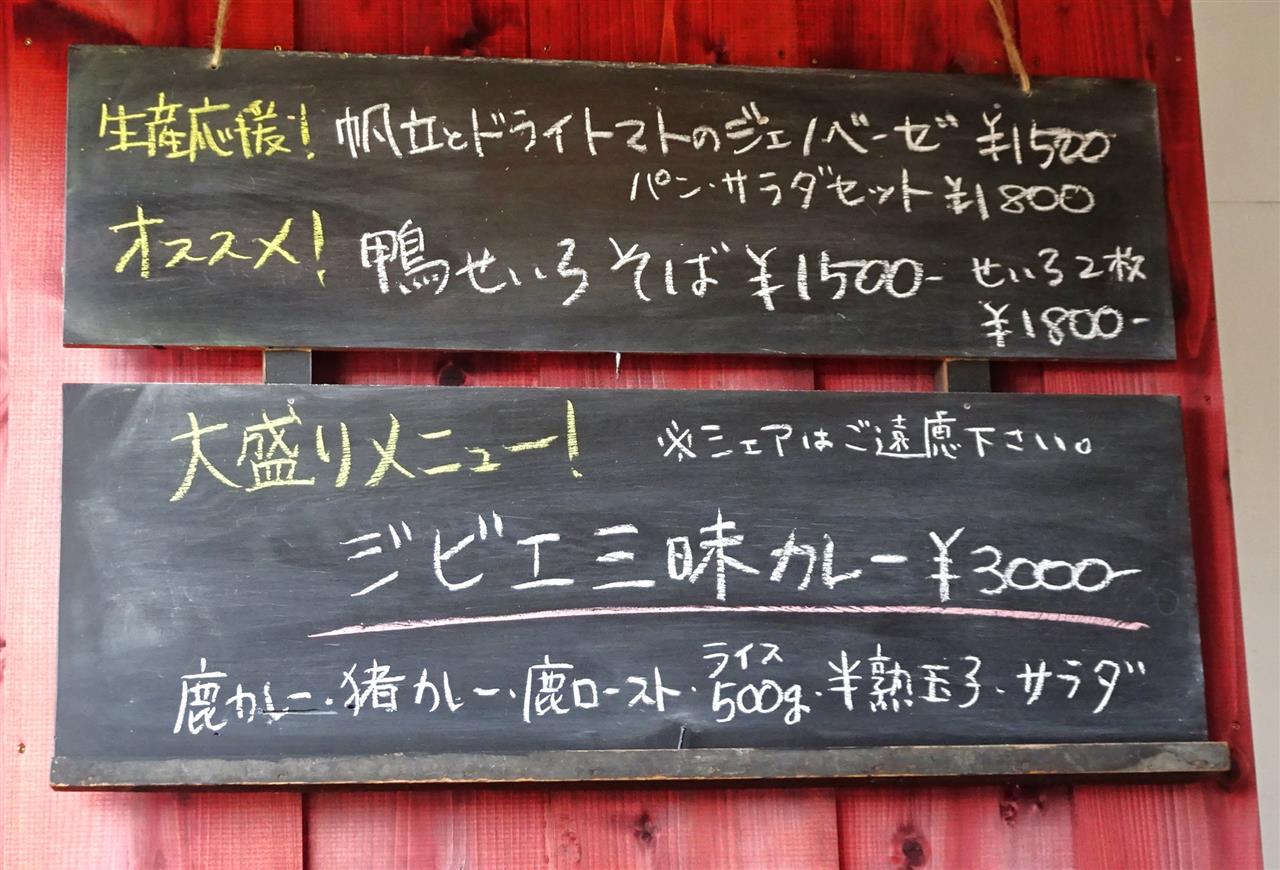 生産応援! 帆立とドライトマトのジェノベーゼ ¥1500
パン・サラダセット ¥1800
オススメ! 鴨せいろそば ¥1500- せいろ2枚
¥1800-
大盛りメニュー! ※シェアはご遠慮下さい。
ジビエ三昧カレー ¥3000-
鹿カレー・猪カレー・鹿ロースト・ライス500g・半熟玉子・サラダ